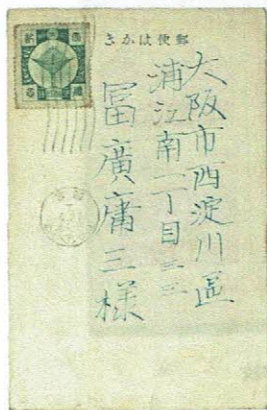 郵便はかき
大阪市西淀川區
浦江南一丁目三三
冨廣庸三樣